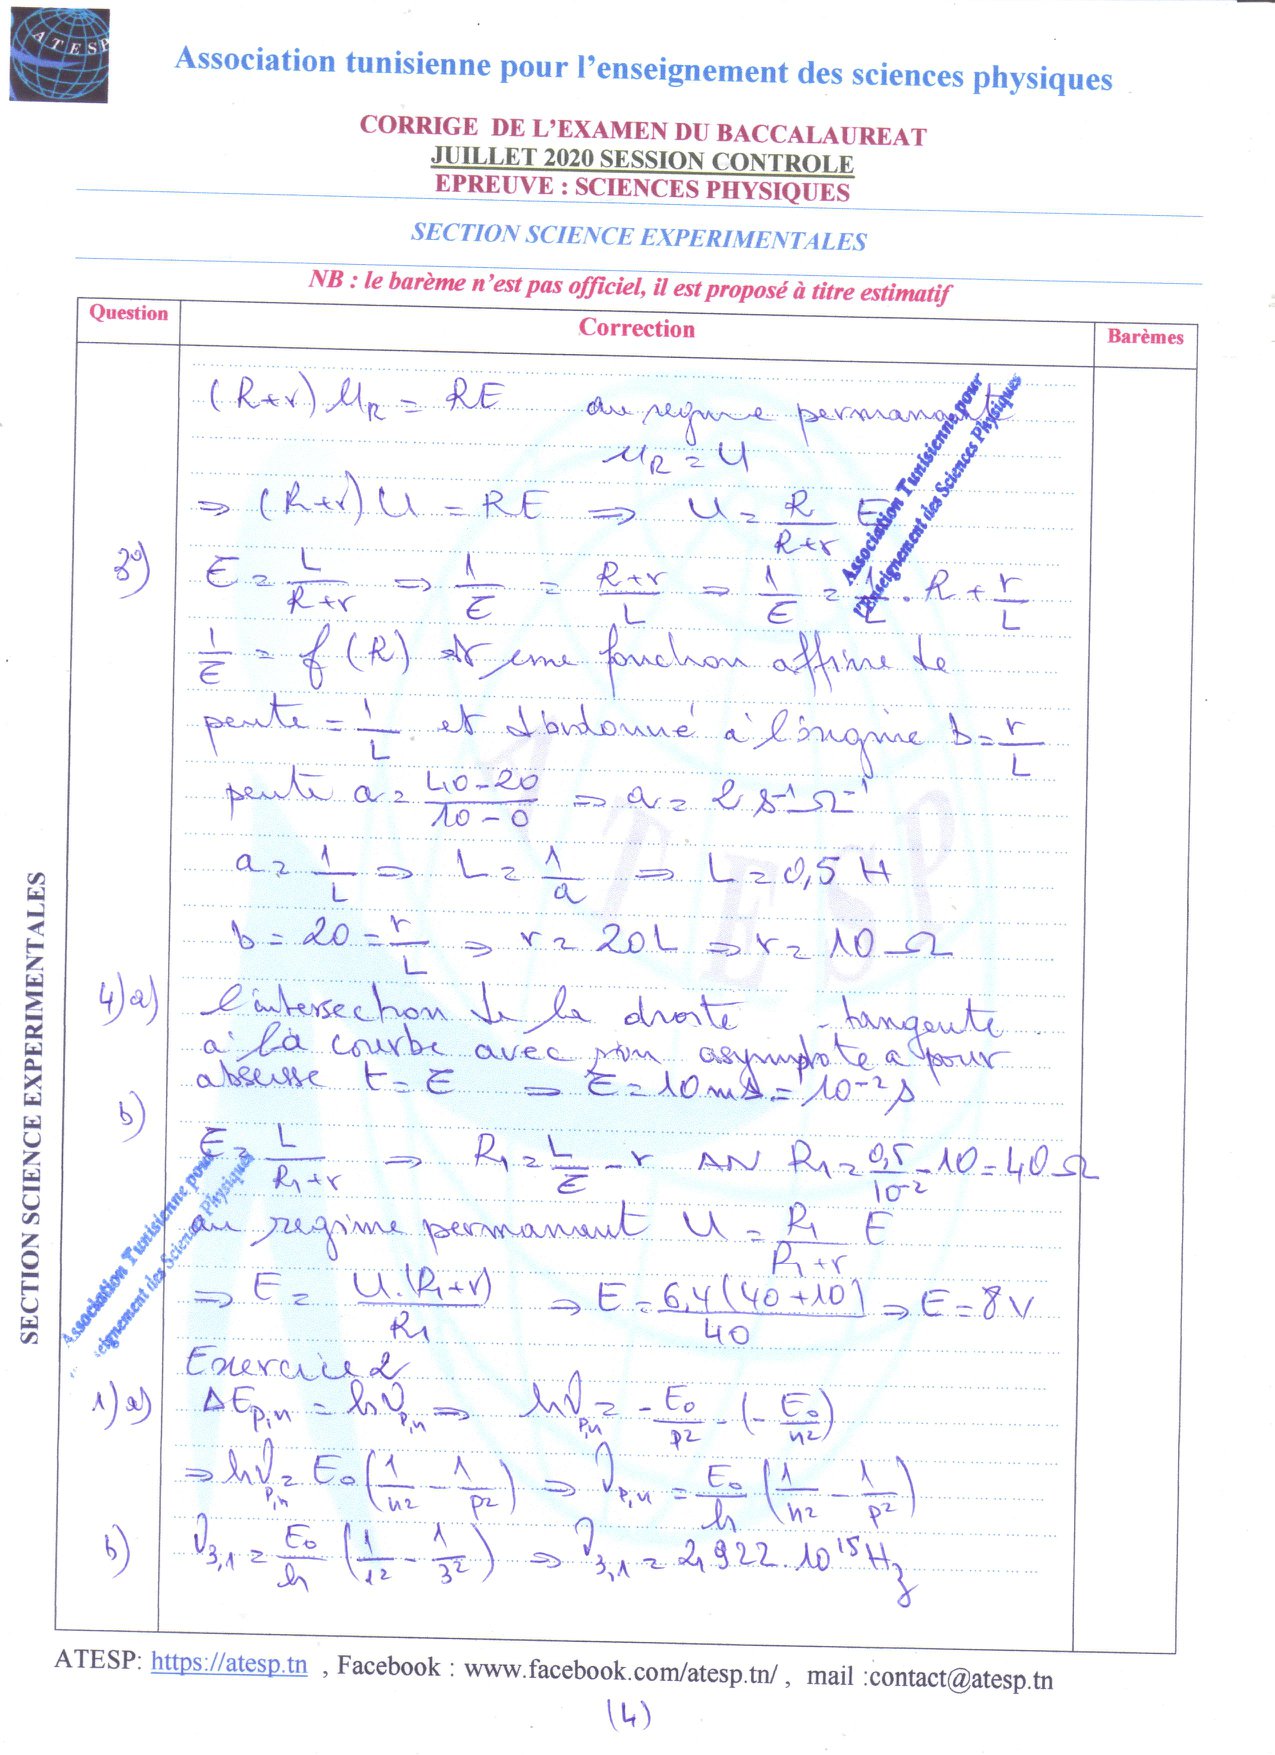 ATESP
Association tunisienne pour l'enseignement des sciences physiques
CORRIGE DE L'EXAMEN DU BACCALAUREAT
JUILLET 2020 SESSION CONTROLE
EPREUVE : SCIENCES PHYSIQUES
SECTION SCIENCE EXPERIMENTALES
NB : le barème n'est pas officiel, il est proposé à titre estimatif
Question Correction Barèmes
(R+r) u_R = RE au regime permanante
u_R = U
⇒ (R+r) U = RE ⇒ U = R/(R+r) E
3°) τ = L/(R+r) ⇒ 1/τ = (R+r)/L ⇒ 1/τ = 1/L . R + r/L
1/τ = f(R) est une fonction affine de
pente = 1/L et d'ordonné à l'origine b = r/L
pente a = (40-20)/(10-0) ⇒ a = 2 s⁻¹Ω⁻¹
a = 1/L ⇒ L = 1/a ⇒ L = 0,5 H
b = 20 = r/L ⇒ r = 20L ⇒ r = 10 Ω
4)a) l'intersection de la droite tangente
à la courbe avec son asymptote a pour
abscisse t = τ ⇒ τ = 10 ms = 10⁻² s
b)
τ = L/(R₁+r) ⇒ R₁ = L/τ - r AN R₁ = 0,5/10⁻² - 10 = 40 Ω
au regime permanant U = R₁/(R₁+r) E
⇒ E = U.(R₁+r)/R₁ ⇒ E = 6,4(40+10)/40 ⇒ E = 8V
Exercice 2
1)a) ΔE_p,n = hν_p,n ⇒ hν_p,n = -E₀/p² - (-E₀/n²)
⇒ hν_p,n = E₀ (1/n² - 1/p²) ⇒ ν_p,n = E₀/h (1/n² - 1/p²)
b) ν_3,1 = E₀/h (1/1² - 1/3²) ⇒ ν_3,1 = 2,922.10¹⁵ Hz
Association Tunisienne pour
l'Enseignement des Sciences Physiques
Association Tunisienne pour
seignement des Sciences Physiques
SECTION SCIENCE EXPERIMENTALES
A T E S P
ATESP: https://atesp.tn , Facebook : www.facebook.com/atesp.tn/ , mail :contact@atesp.tn
(4)